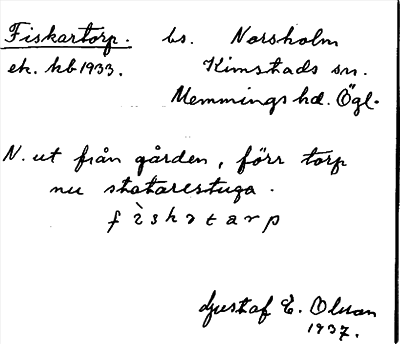 Fiskartorp. bs. Norsholm
ek. kb 1933. Kimstads sn.
Memmings hd. Ögl.
N. ut från gården, förr torp
nu statarestuga.
fìskɔtarp
Gustaf E. Olsson
1937.